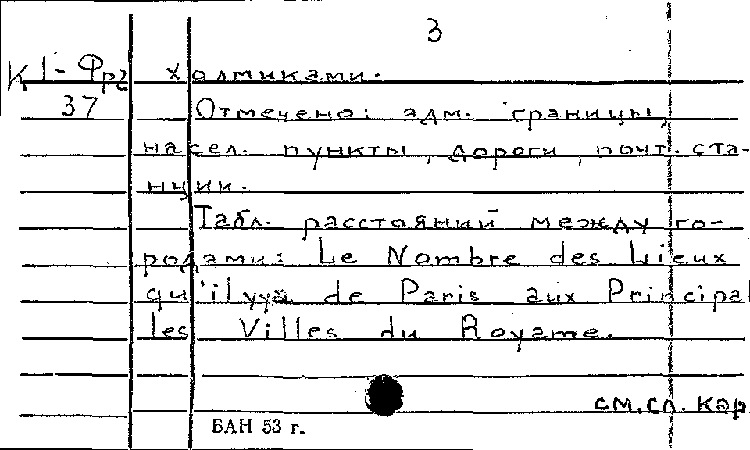 3
К I - Фрг холмиками.
37 Отмечено: адм. границы,
насел. пункты, дороги, почт. ста-
нции.
Табл. расстояний между го-
родами: Le Nombre des Lieux
qu'ilyya de Paris aux Principal
les Villes du Royame.
см. сл. кар
БАН 53 г.